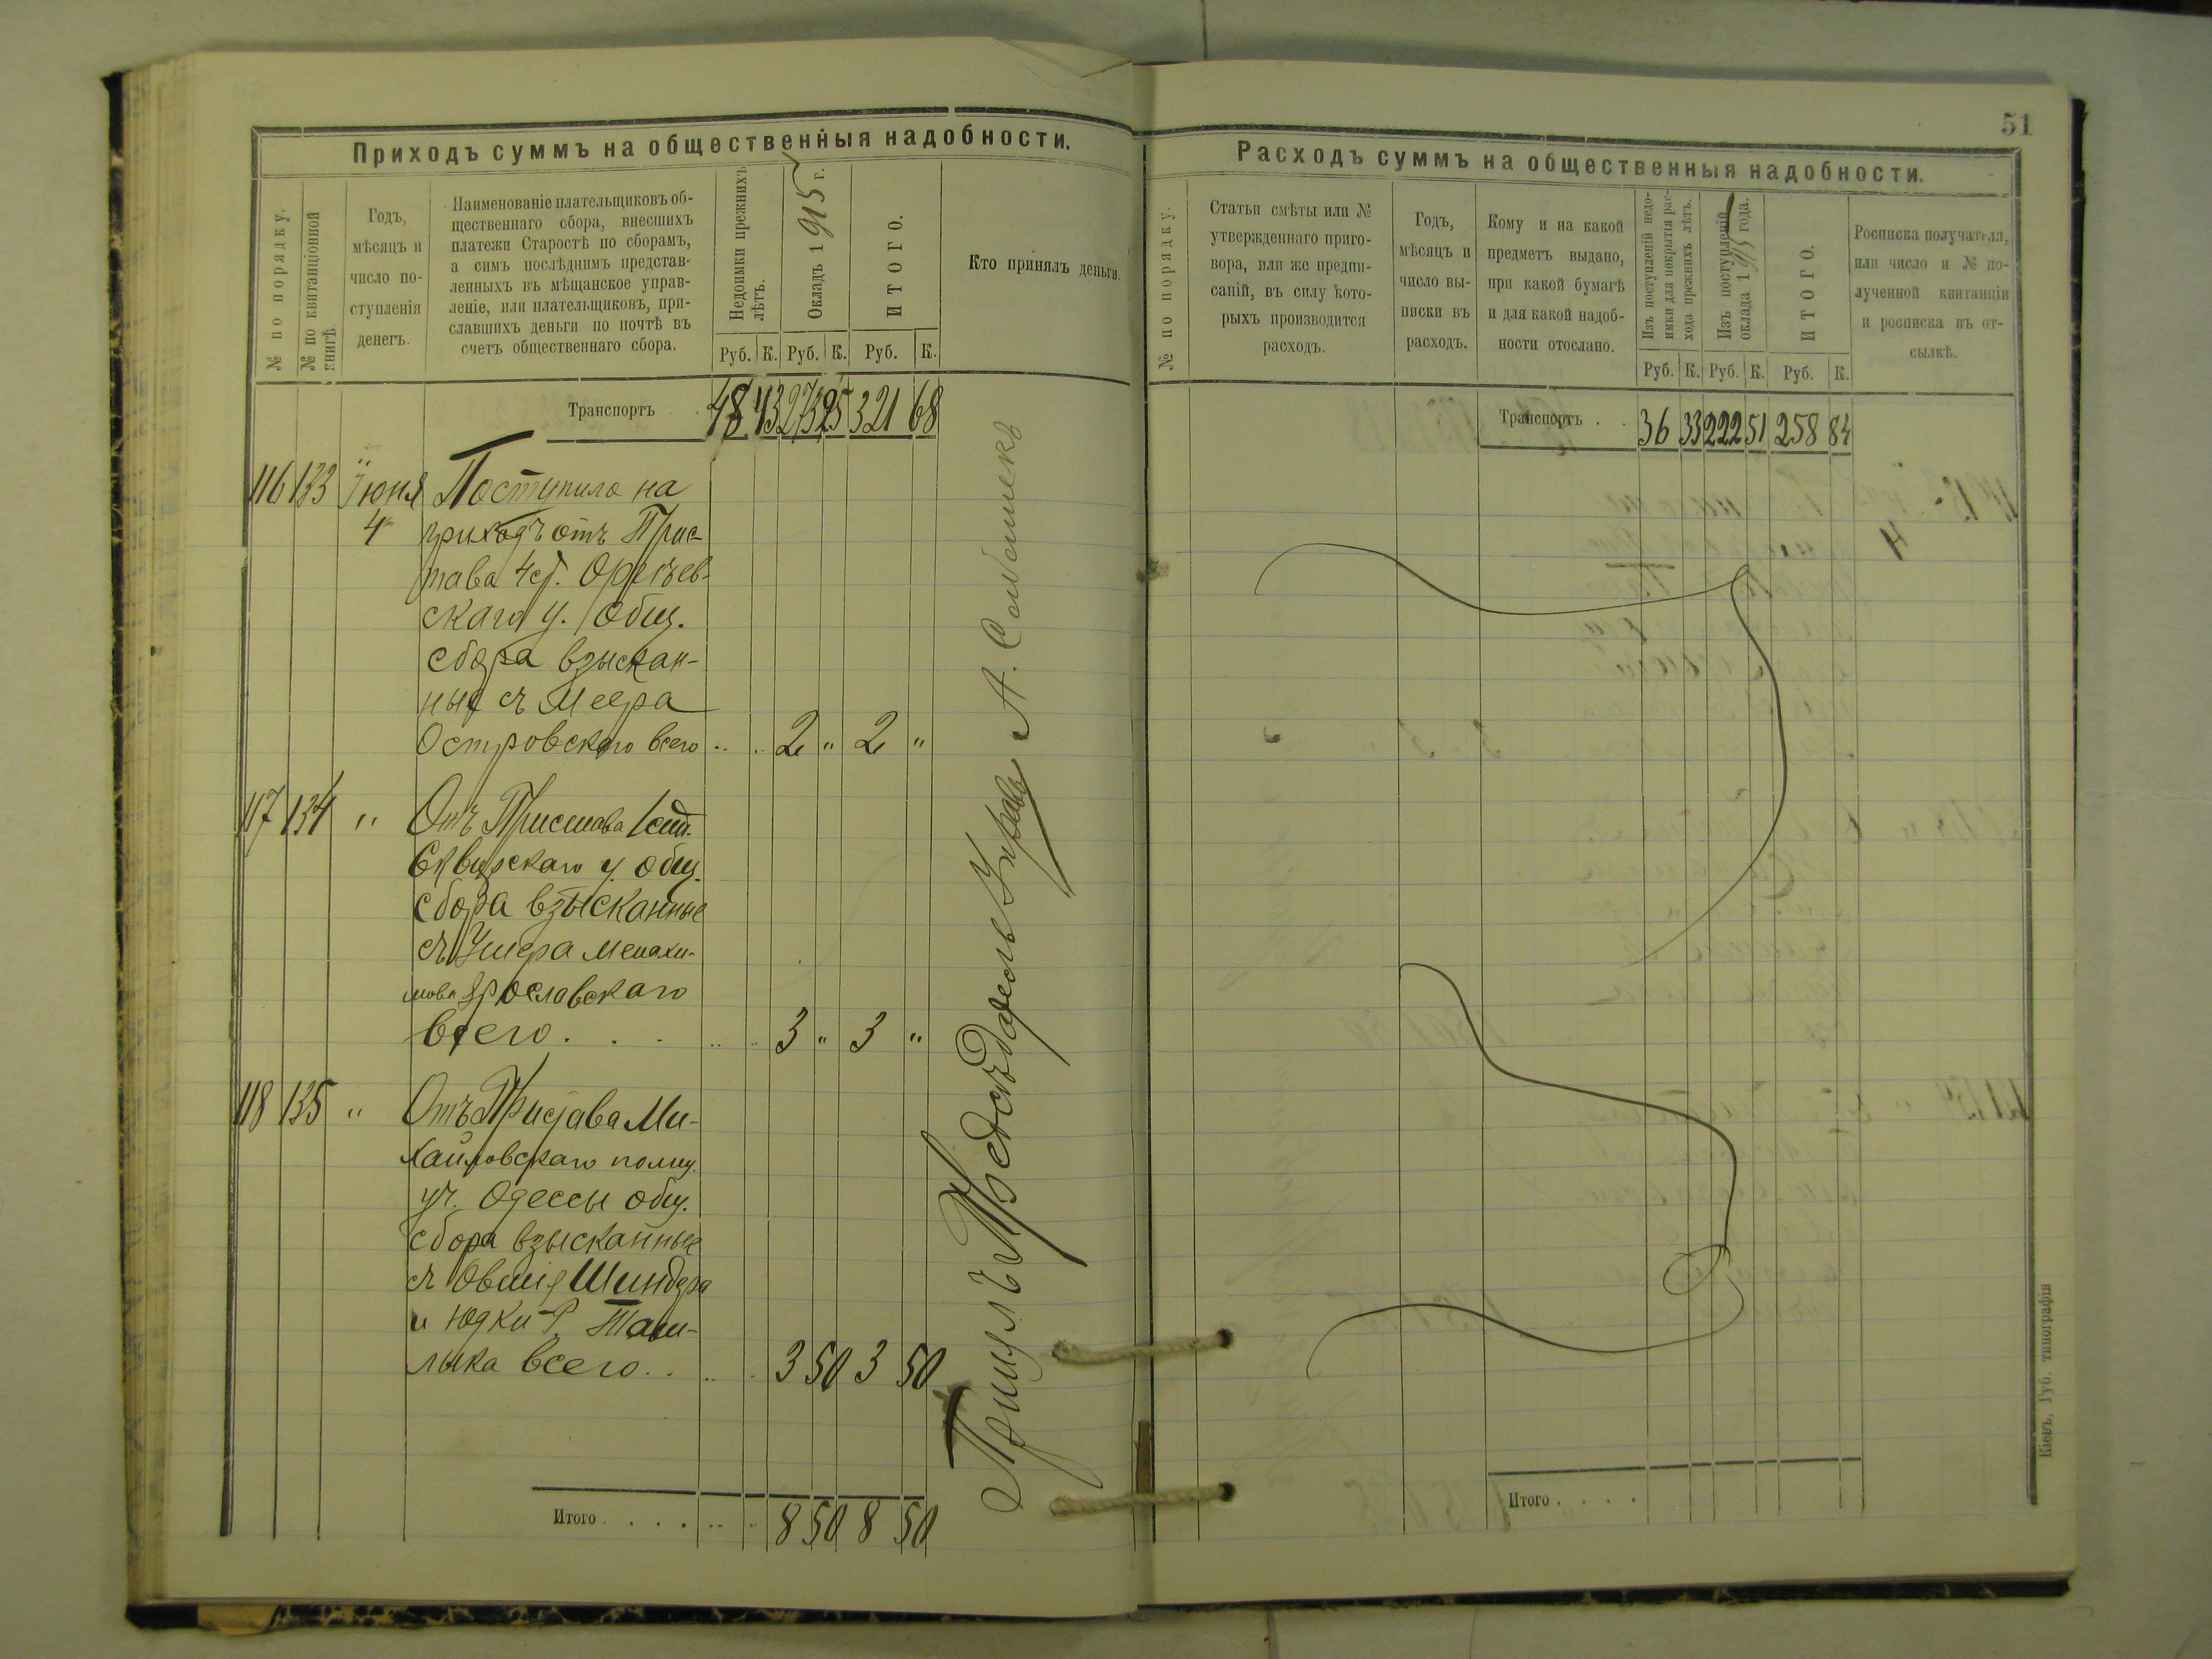 Приходъ суммъ на общественныя надобности.
№ по порядку.
№ по квитанціонной
книгѣ.
Годъ,
мѣсяцъ и
число по-
ступленія
денегъ.
Наименованіе плательщиковъ об-
щественнаго сбора, внесшихъ
платежи Старостѣ по сборамъ,
а симъ послѣднимъ представ-
ленныхъ въ мѣщанское управ-
леніе, или плательщиковъ, при-
славшихъ деньги по почтѣ въ
счетъ общественнаго сбора.
Недоимки прежнихъ
лѣтъ.
Окладъ 1915 г.
ИТОГО.
Кто принялъ деньги.
Руб. К. Руб. К. Руб. К.
Транспортъ . 48 43 273 25 321 68
116 133 Іюня Поступило на
4 приходъ отъ Прис-
тава 4 ст.
скаго у. Общ.
сбора взыскан-
ные съ Меера
Островскаго всего 2 " 2 "
117 134 " Отъ Пристава 1 ст.
Сквирскаго у. общ.
сбора взысканные
съ Ушера Менахи-
мова Ярославскаго
всего . . . 3 " 3 "
118 135 " Отъ Пристава Ми-
хайловскаго полиц.
уч. Одессы общ.
сбора взысканные
съ Овшія Шиндера
и Юдки Р. Таш-
лыка всего . . 3 50 3 50
Итого . . . . 8 50 8 50
Принялъ Предсѣдатель Управы А.
51
Расходъ суммъ на общественныя надобности.
№ по порядку.
Статьи смѣты или №
утвержденнаго приго-
вора, или же предпи-
саній, въ силу кото-
рыхъ производится
расходъ.
Годъ,
мѣсяцъ и
число вы-
писки въ
расходъ.
Кому и на какой
предметъ выдано,
при какой бумагѣ
и для какой надоб-
ности отослано.
Изъ поступленій недо-
имки для покрытія рас-
хода прежнихъ лѣтъ.
Изъ поступленій
оклада 1915 года.
ИТОГО.
Росписка получателя,
или число и № по-
лученной квитанціи
и росписка въ от-
сылкѣ.
Руб. К. Руб. К. Руб. К.
Транспортъ . . 36 33 222 51 258 84
Итого . . . .
Кіевъ, Губ. типографія